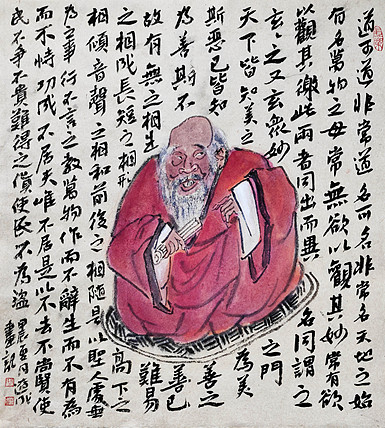 道可道非常道名可名非常名天地之始
有名萬物之母常無欲以觀其妙常有欲
以觀其徼此兩者同出而異名同謂之
玄玄之又玄眾妙之門
天下皆知美之為美
斯惡已皆知善之
為善斯不善已
故有無之相生難易
之相成長短之相形高下之
相傾音聲之相和前後之相隨是以聖人處無
為之事行不言之教萬物作而不辭生而不有為
而不恃功成不居夫唯不居是以不去不尚賢使
民不爭不貴難得之貨使民不為盜